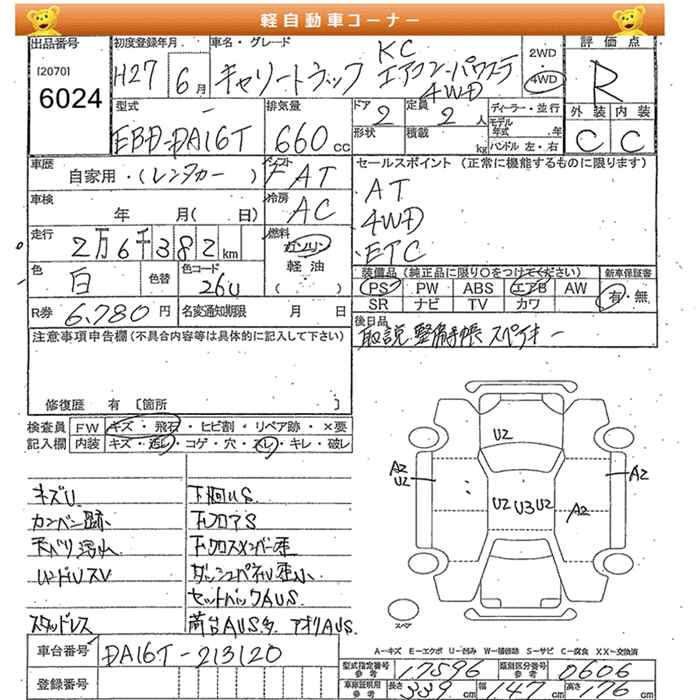 軽自動車コーナー
出品番号 初度登録年月 車名・グレード 評価点
[2070]
6024
H27 6月 キャリートラック KC エアコン・パワステ 4WD
2WD
4WD
R
型式 排気量 ドア 定員 ディーラー・並行 外装 内装
EBD-DA16T 660cc 2 2人 モデル年式 年
形状 積載 kg ハンドル 左・右
C C
車歴 自家用・(レンタカー) シフト FAT
セールスポイント (正常に機能するものに限ります)
・AT
・4WD
・ETC
車検 年 月(日) 冷房 AC
走行 2万6千382km 燃料 ガソリン 軽油 ( )
色 白 色替 色コード 26U
装備品(純正品に限り○をつけてください) 新車保証書
PS PW ABS エアB AW 有・無
SR ナビ TV カワ
R券 6,780円 名変通知期限 月 日
後日品
取説 整備手帳 スペアキー
注意事項申告欄(不具合内容等は具体的に記入して下さい)
修復歴 有 [箇所 ]
検査員 FW キズ・飛石・ヒビ割・リペア跡・×要
記入欄 内装 キズ・汚れ・コゲ・穴・スレ・キレ・破レ
キズU 下廻US
カンバン跡 下フロアS
天ベリ汚れ 下クロスメンバー歪
ダッシュパネル歪小
セットバックAUS
スタッドレス 荷台AUS多 アオリAUS
U2
A2
U2
U2 U3 U2
A2
A2
スペア
A-キズ E-エクボ U-凹み W-補修跡 S-サビ C-腐食 XX-交換済
車台番号 DA16T-213120
型式指定番号 参考 17596 類別区分番号 参考 0606
登録番号
車庫証明用 参考 長さ 339cm 幅 147cm 高さ 176cm